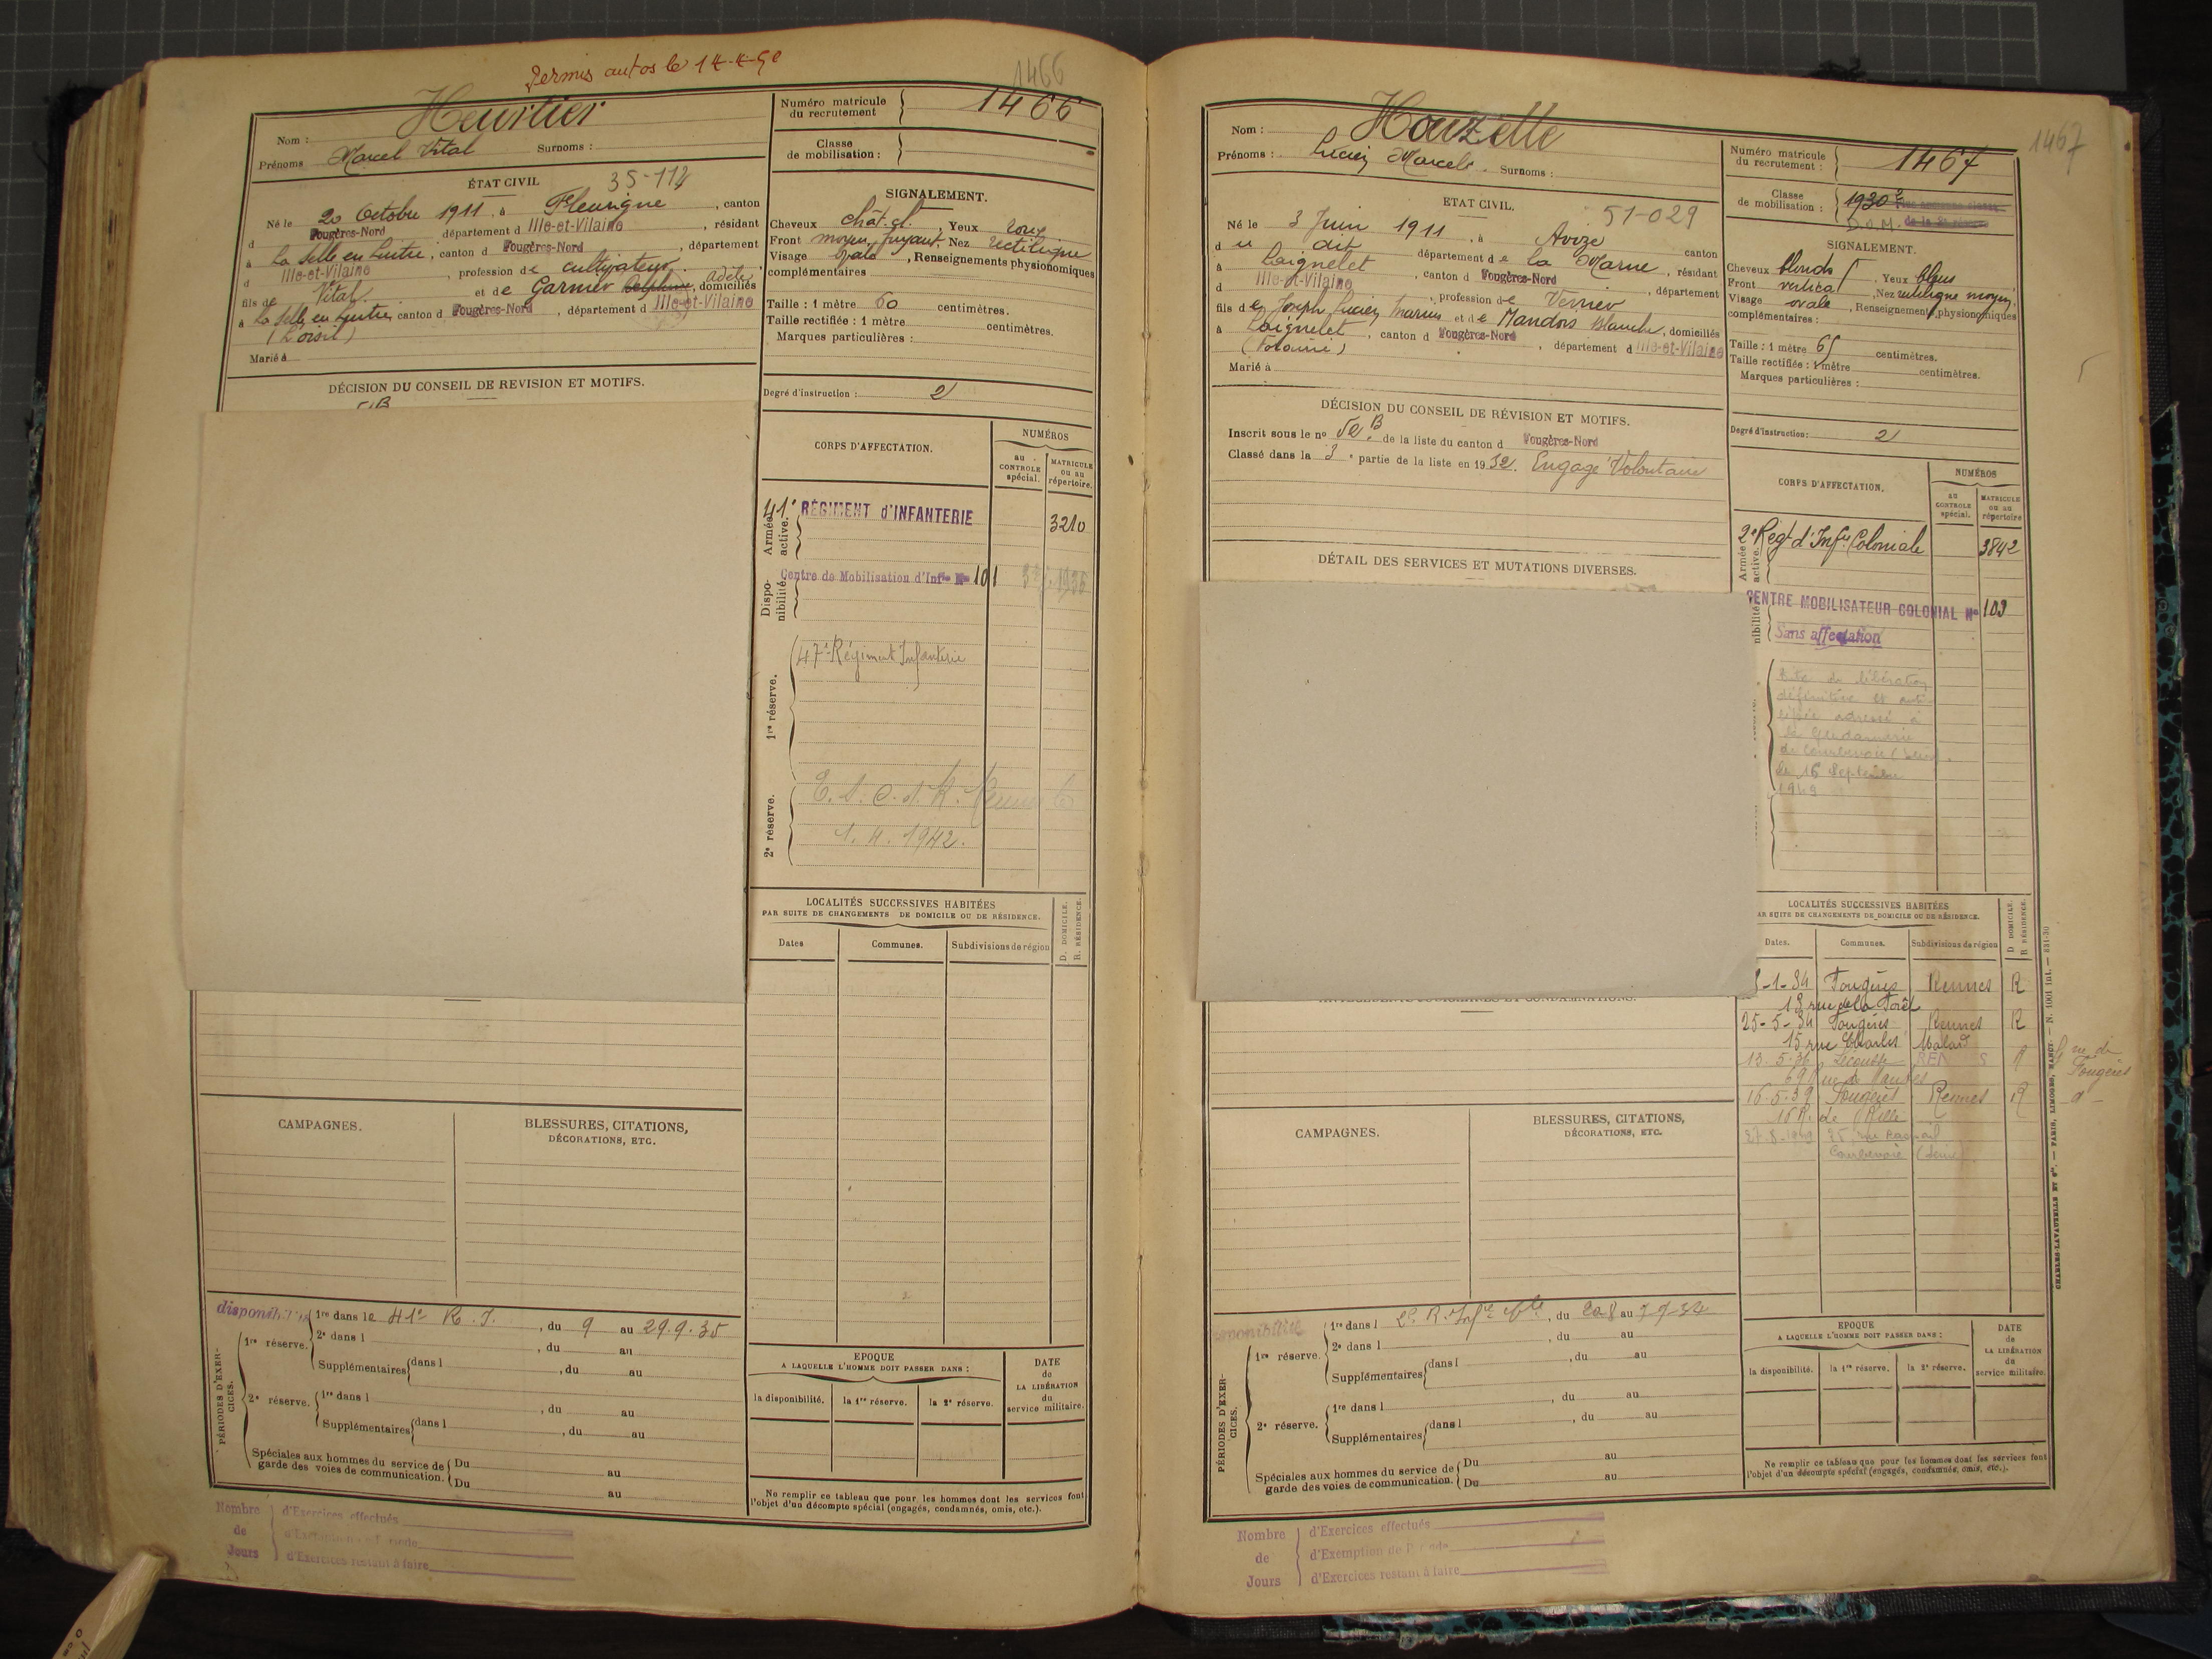 Permis autos le 14-4-50
1466
Nom : Heurtier
Prénoms Marcel Vital Surnoms :
Numéro matricule du recrutement 1466
Classe de mobilisation :
ÉTAT CIVIL 35-114
Né le 20 Octobre 1911, à Fleurigné, canton
d Fougères-Nord département d Ille-et-Vilaine, résidant
à La Selle en Luitré, canton d Fougères-Nord, département
d Ille-et-Vilaine, profession de cultivateur,
fils de Vital et de Garnier Adèle, domiciliés
à La Selle en Luitré, canton d Fougères-Nord, département d Ille-et-Vilaine
Marié à
SIGNALEMENT.
Cheveux chât. cl., Yeux
Front moyen, fuyant. Nez rectiligne
Visage ovale, Renseignements physionomiques
complémentaires
Taille : 1 mètre 60 centimètres.
Taille rectifiée : 1 mètre centimètres.
Marques particulières :
Degré d'instruction : 2
DÉCISION DU CONSEIL DE REVISION ET MOTIFS.
CORPS D'AFFECTATION.
NUMÉROS
au CONTROLE spécial.
MATRICULE ou au répertoire.
Armée active.
41e RÉGIMENT d'INFANTERIE 3210
Disponibilité.
Centre de Mobilisation d'Infie No 101
1re réserve.
47e Régiment Infanterie
2e réserve.
1. 4. 1942.
LOCALITÉS SUCCESSIVES HABITÉES
PAR SUITE DE CHANGEMENTS DE DOMICILE OU DE RÉSIDENCE.
Dates Communes. Subdivisions de région D. DOMICILE. R. RÉSIDENCE.
CAMPAGNES.
BLESSURES, CITATIONS,
DÉCORATIONS, ETC.
PÉRIODES D'EXERCICES.
disponibilité 1re dans le 41e R. I., du 9 au 29.9.35
1re réserve. 2e dans l , du au
Supplémentaires dans l , du au
2e réserve. 1re dans l , du au
Supplémentaires dans l , du au
Spéciales aux hommes du service de Du au
garde des voies de communication. Du au
EPOQUE
A LAQUELLE L'HOMME DOIT PASSER DANS :
la disponibilité. la 1re réserve. la 2e réserve.
DATE de LA LIBÉRATION du service militaire.
Ne remplir ce tableau que pour les hommes dont les services font
l'objet d'un décompte spécial (engagés, condamnés, omis, etc.).
Nombre de Jours
d'Exercices effectués
d'Exercices restant à faire
1467
Nom : Houzelle
Prénoms : Lucien Marcel. Surnoms :
Numéro matricule du recrutement : 1467
Classe de mobilisation : 1930
D.O.M. de la 2e réserve
ETAT CIVIL. 51-029
Né le 3 Juin 1911, à Avize
d u dit canton département de la Marne, résidant
à Laignelet, canton d Fougères-Nord, département
d Ille-et-Vilaine, profession de Verrier
fils de Joseph Lucien Marius et de Mandois Blanche, domiciliés
à Laignelet, canton d Fougères-Nord, département d Ille-et-Vilaine
Marié à
SIGNALEMENT.
Cheveux blonds, Yeux bleus
Front vertical, Nez rectiligne moyen,
Visage ovale, Renseignements physionomiques
complémentaires :
Taille : 1 mètre 65 centimètres.
Taille rectifiée : 1 mètre centimètres.
Marques particulières :
Degré d'instruction : 2
DÉCISION DU CONSEIL DE RÉVISION ET MOTIFS.
Inscrit sous le no 52 B de la liste du canton d Fougères-Nord
Classé dans la 3e partie de la liste en 1932. Engagé Volontaire
DÉTAIL DES SERVICES ET MUTATIONS DIVERSES.
CORPS D'AFFECTATION.
NUMÉROS
au CONTROLE spécial.
MATRICULE ou au répertoire
Armée active.
2e Regt d'Infie Coloniale 3842
nibilité
CENTRE MOBILISATEUR COLONIAL No 103
Sans affectation
de libération
définitive et anti-
cipée adressé à
la Gendarmerie
de Courbevoie (Seine).
le 16 Septembre
1949
LOCALITÉS SUCCESSIVES HABITÉES
AR SUITE DE CHANGEMENTS DE DOMICILE OU DE RÉSIDENCE.
Dates. Communes. Subdivisions de région D DOMICILE. R RÉSIDENCE.
-1-34 Fougères Rennes R
13 rue de la Forêt
25-5-34 Fougères Rennes R
15 rue Charles Malard
13.5.36 Lécousse RENNES R
69 rue de Nantes
rue de Fougères
16-5-39 Fougères Rennes R
16 R. de Rillé
27-8-1949 25 rue Raspail
Courbevoie (Seine)
CAMPAGNES.
BLESSURES, CITATIONS,
DÉCORATIONS, ETC.
PÉRIODES D'EXERCICES.
1re dans l 2e R. Infie Cole, du 20.8 au 9-9-34
1re réserve. 2e dans l , du au
Supplémentaires dans l , du au
2e réserve. 1re dans l , du au
Supplémentaires dans l , du au
Spéciales aux hommes du service de Du au
garde des voies de communication. Du au
EPOQUE
A LAQUELLE L'HOMME DOIT PASSER DANS :
la disponibilité. la 1re réserve. la 2e réserve.
DATE de LA LIBÉRATION du service militaire.
Ne remplir ce tableau que pour les hommes dont les services font
l'objet d'un décompte spécial (engagés, condamnés, omis, etc.).
CHARLES-LAVAUZELLE ET Cie. — PARIS, LIMOGES, NANCY.
Nombre de Jours
d'Exercices effectués
d'Exemption de Période
d'Exercices restant à faire